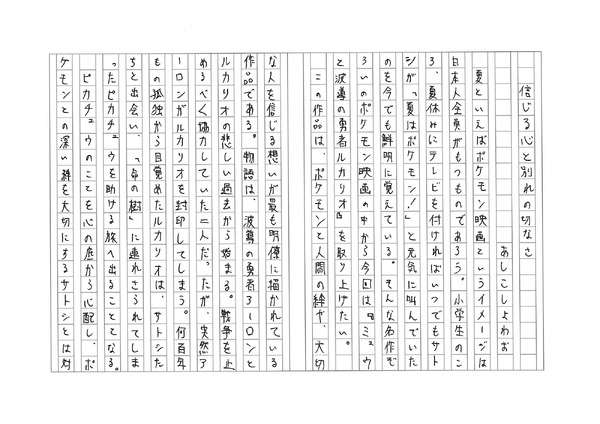 信じる心と別れの切なさ
あしこしょわお
夏といえばポケモン映画というイメージは
日本人全員がもつものであろう。小学生のこ
ろ、夏休みにテレビを付ければいつでもサト
シが「夏はポケモン!」と元気に叫んでいた
のを今でも鮮明に覚えている。そんな名作ぞ
ろいのポケモン映画の中から今回は『ミュウ
と波導の勇者ルカリオ』を取り上げたい。
この作品は、ポケモンと人間の絆や、大切
な人を信じる想いが最も明瞭に描かれている
作品である。物語は、波導の勇者アーロンと
ルカリオの悲しい過去から始まる。戦争を止
めるべく協力していた二人だったが、突然ア
ーロンがルカリオを封印してしまう。何百年
もの孤独から目覚めたルカリオは、サトシた
ちと出会い、「命の樹」に連れさられてしま
ったピカチュウを助ける旅へ出ることとなる。
ピカチュウのことを心の底から心配し、ポ
ケモンとの深い絆を大切にするサトシとは対